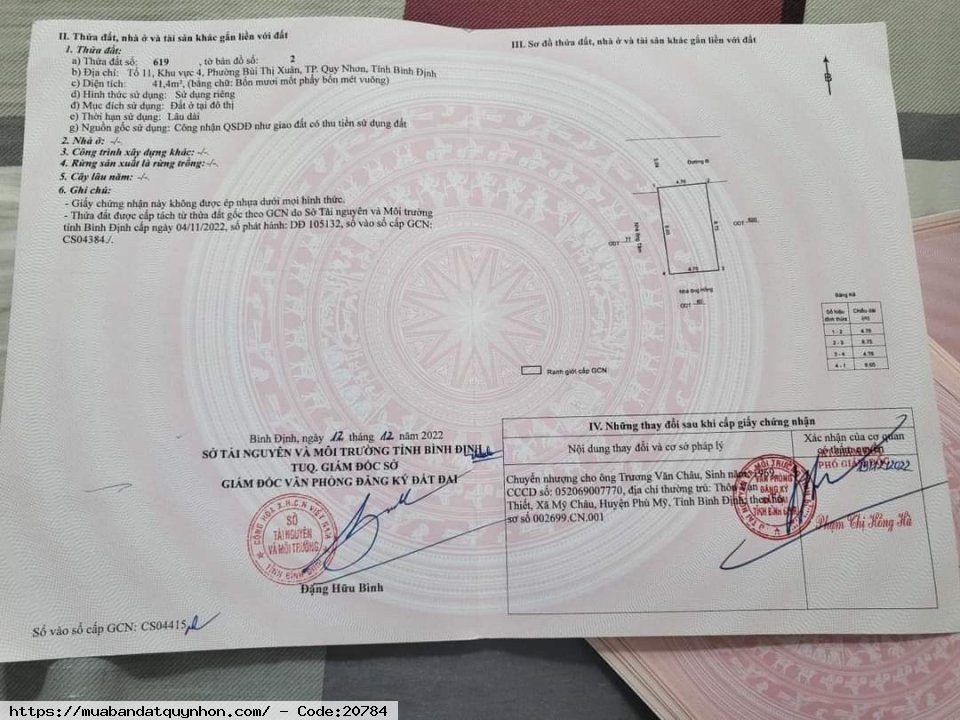 II. Thửa đất, nhà ở và tài sản khác gắn liền với đất
1. Thửa đất:
a) Thửa đất số: 619 , tờ bản đồ số: 2
b) Địa chỉ: Tổ 11, Khu vực 4, Phường Bùi Thị Xuân, TP. Quy Nhơn, Tỉnh Bình Định
c) Diện tích: 41,4m², (bằng chữ: Bốn mươi mốt phẩy bốn mét vuông)
d) Hình thức sử dụng: Sử dụng riêng
đ) Mục đích sử dụng: Đất ở tại đô thị
e) Thời hạn sử dụng: Lâu dài
g) Nguồn gốc sử dụng: Công nhận QSDĐ như giao đất có thu tiền sử dụng đất
2. Nhà ở: -/-
3. Công trình xây dựng khác: -/-
4. Rừng sản xuất là rừng trồng: -/-.
5. Cây lâu năm: -/-
6. Ghi chú:
- Giấy chứng nhận này không được ép nhựa dưới mọi hình thức.
- Thửa đất được cấp tách từ thửa đất gốc theo GCN do Sở Tài nguyên và Môi trường
tỉnh Bình Định cấp ngày 04/11/2022, số phát hành: DĐ 105132, số vào sổ cấp GCN:
CS04384./.
Bình Định, ngày 12 tháng 12 năm 2022
SỞ TÀI NGUYÊN VÀ MÔI TRƯỜNG TỈNH BÌNH ĐỊNH
TUQ. GIÁM ĐỐC SỞ
GIÁM ĐỐC VĂN PHÒNG ĐĂNG KÝ ĐẤT ĐAI
CỘNG HÒA X.H.C.N VIỆT NAM
SỞ
TÀI NGUYÊN
VÀ MÔI TRƯỜNG
TỈNH BÌNH ĐỊNH
Đặng Hữu Bình
Số vào sổ cấp GCN: CS04415
III. Sơ đồ thửa đất, nhà ở và tài sản khác gắn liền với đất
B
Đường đi
1 4.76 2
ODT
ODT
4 4.76 3
Nhà ông Hồng
ODT
Ranh giới cấp GCN
Bảng Kê
Số hiệu đỉnh thửa Chiều dài (m)
1 - 2 4.76
2 - 3 8.75
3 - 4 4.76
4 - 1 8.65
IV. Những thay đổi sau khi cấp giấy chứng nhận
Nội dung thay đổi và cơ sở pháp lý
Xác nhận của cơ quan
có thẩm quyền
Chuyển nhượng cho ông Trương Văn Châu, Sinh năm: 1969,
CCCD số: 052069007770, địa chỉ thường trú: Thôn Vạn
Thiết, Xã Mỹ Châu, Huyện Phù Mỹ, Tỉnh Bình Định; theo hồ
sơ số 002699.CN.001
PHÓ GIÁM ĐỐC
VĂN PHÒNG
ĐĂNG KÝ
TỈNH BÌNH ĐỊNH
Phạm Thị Hồng Hà
https://muabandatquynhon.com/ - Code:20784